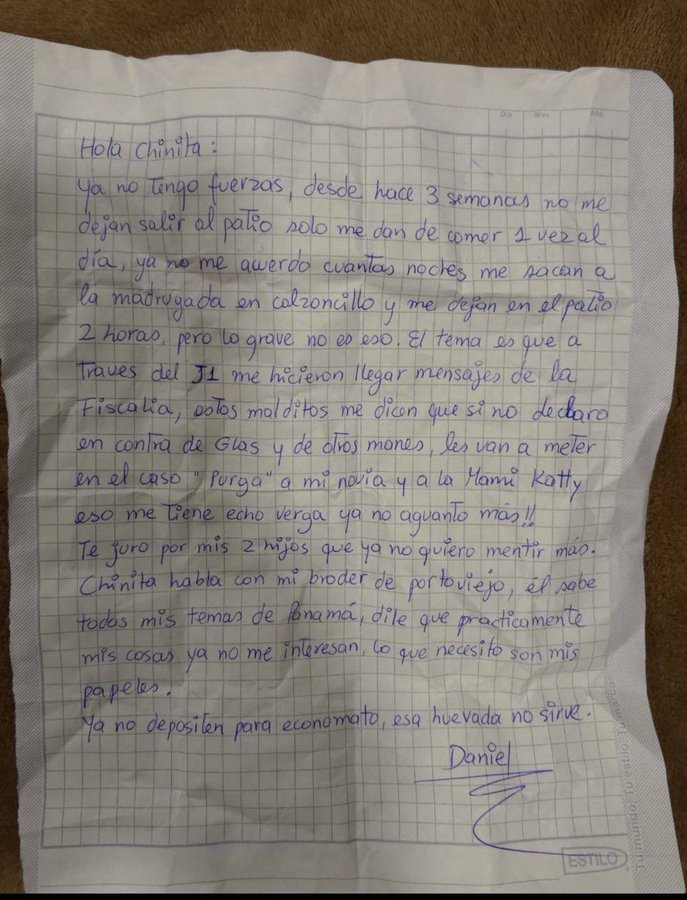 Día Mes Año
Hola Chinita:
Ya no Tengo fuerzas, desde hace 3 semanas no me
dejan salir al patio solo me dan de comer 1 vez al
día, ya no me acuerdo cuantas noches me sacan a
la madrugada en calzoncillo y me dejan en el patio
2 horas, pero lo grave no es eso. El tema es que a
Traves del J1 me hicieron llegar mensajes de la
Fiscalia, estos malditos me dicen que si no declaro
en contra de Glas y de otros manes, les van a meter
en el caso "Purga" a mi novia y a la Mami Katty
eso me tiene echo verga ya no aguanto más!!
Te juro por mis 2 hijos que ya no quiero mentir más.
Chinita habla con mi broder de portoviejo, él sabe
todos mis temas de Panamá, dile que practicamente
mis cosas ya no me interesan, lo que necesito son mis
papeles.
Ya no depositen para economato, esa huevada no sirve.
Daniel
ESTILO
Tu mundo. Tu estilo.